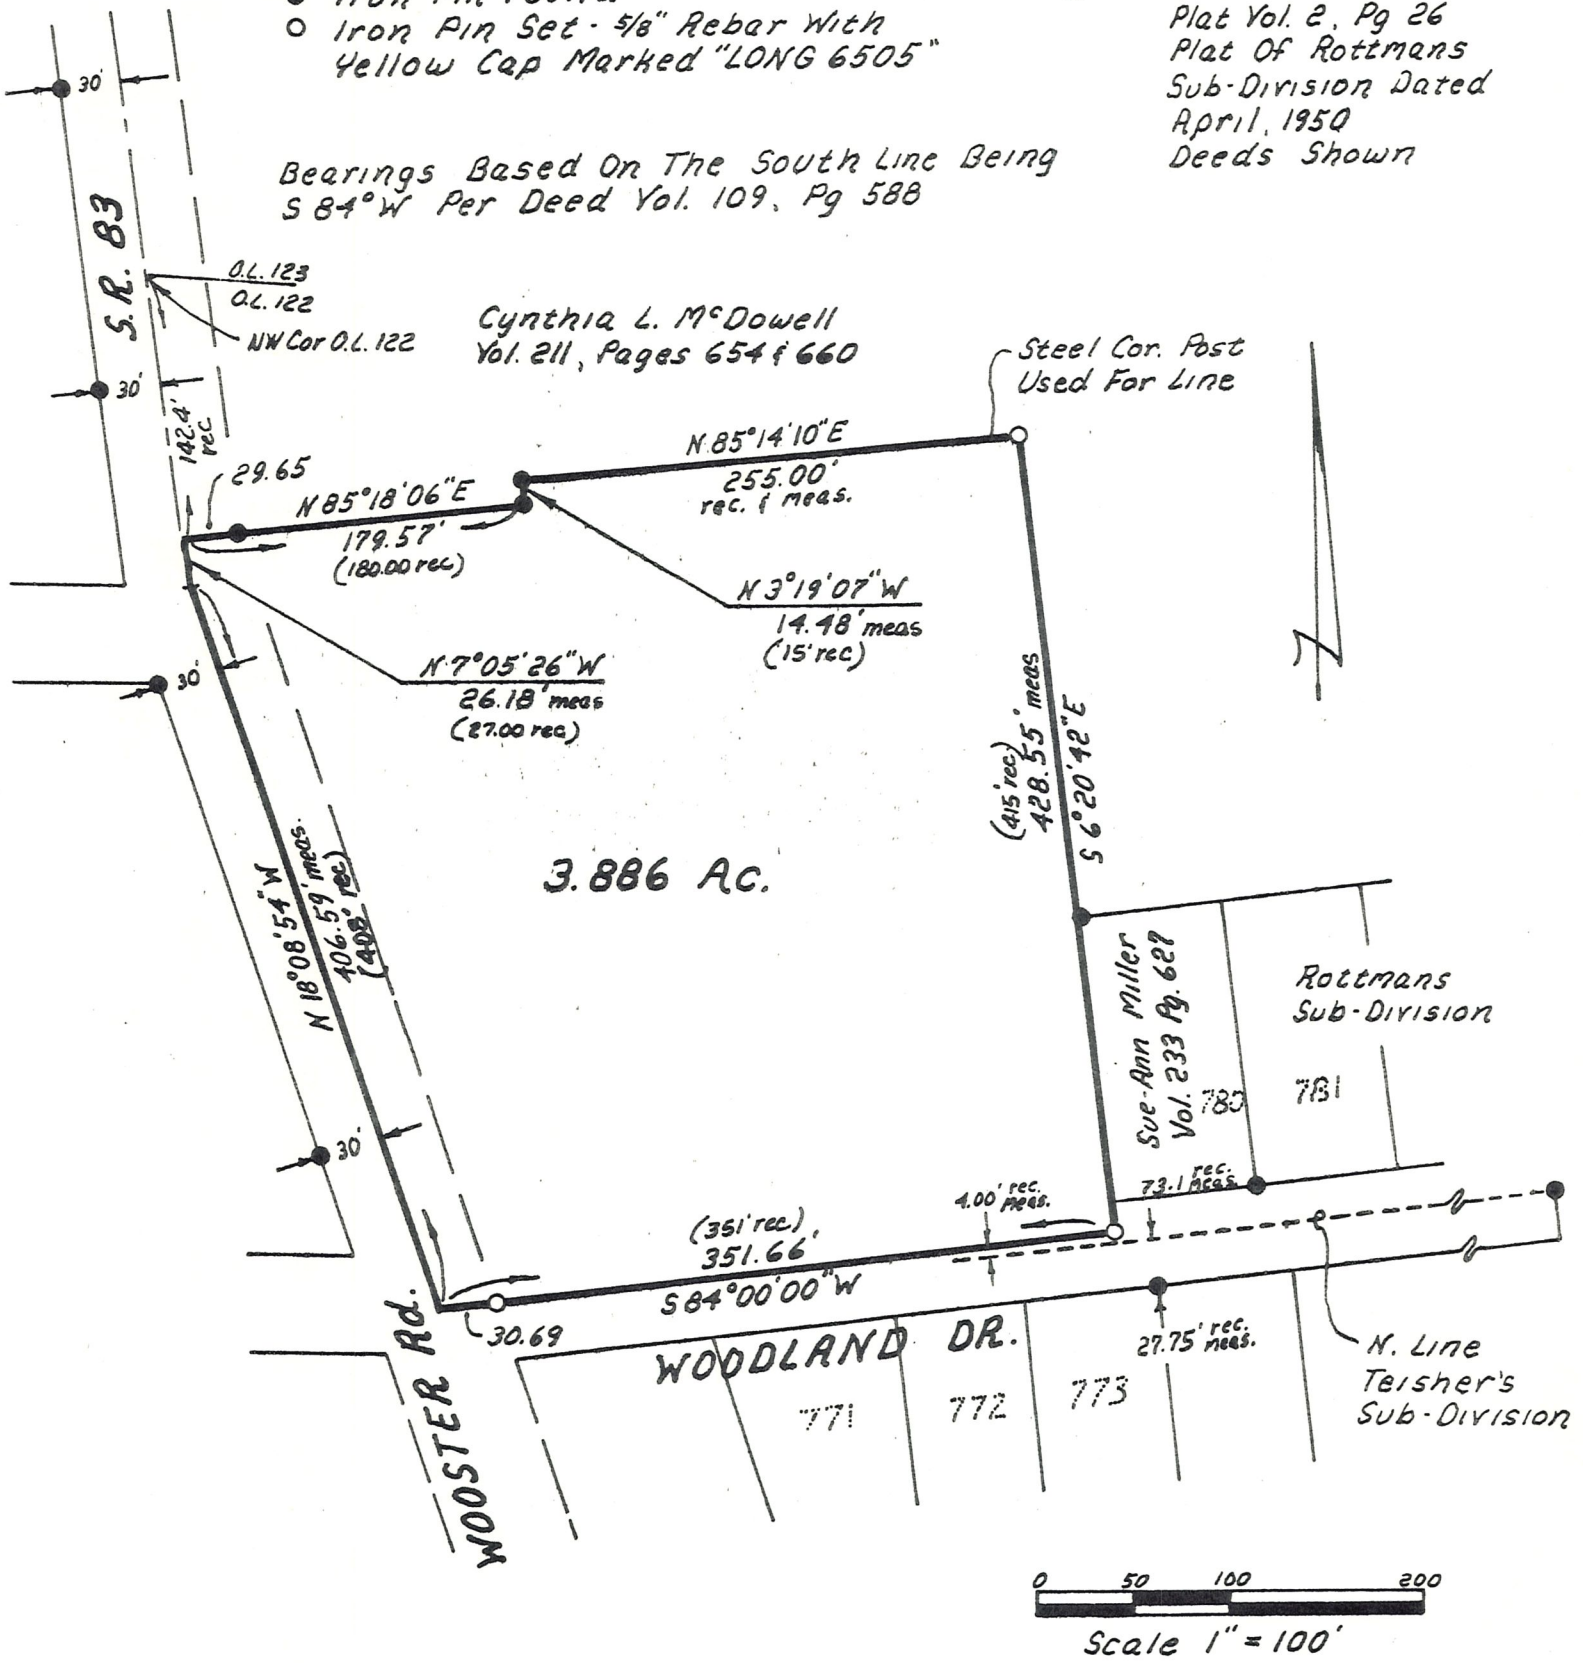 Iron Pin Set - 5/8" Rebar With
Yellow Cap Marked "LONG 6505"
Plat Vol. 2, Pg 26
Plat Of Rottmans
Sub-Division Dated
April, 1950
Deeds Shown
Bearings Based On The South Line Being
S 84° W Per Deed Vol. 109, Pg 588
30'
S.R. 83
O.L. 123
O.L. 122
NW Cor O.L. 122
Cynthia L. McDowell
Vol. 211, Pages 654 & 660
Steel Cor. Post
Used For Line
30'
142.4'
rec
29.65
N 85°18'06"E
179.57'
(180.00 rec)
N 85°14'10"E
255.00'
rec. & meas.
N 3°19'07"W
14.48' meas
(15' rec)
N 7°05'26"W
26.18' meas
(27.00 rec)
30'
(415' rec)
428.55' meas
S 6°20'42"E
3.886 Ac.
N 18°08'54"W
406.59' meas.
(408' rec)
Sue-Ann Miller
Vol. 233 Pg. 627
Rottmans
Sub-Division
780
781
30'
73.1 rec.
meas.
4.00' rec.
meas.
(351' rec)
351.66'
S 84°00'00"W
30.69
WOOSTER Rd.
WOODLAND DR.
27.75' rec.
meas.
N. Line
Teisher's
Sub-Division
771
772
773
0 50 100 200
Scale 1" = 100'